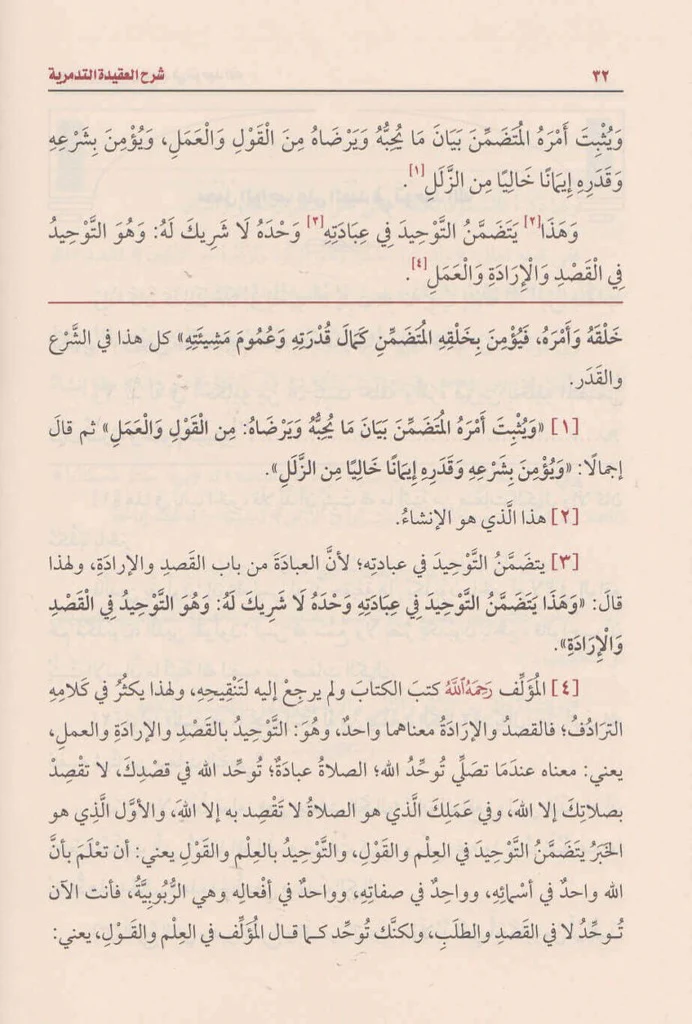 ٣٢
شرح العقيدة التدمرية
وَيُثْبِتَ أَمْرَهُ المُتَضَمِّنَ بَيَانَ مَا يُحِبُّهُ وَيَرْضَاهُ مِنَ الْقَوْلِ وَالْعَمَلِ، وَيُؤْمِنَ بِشَرْعِهِ
وَقَدَرِهِ إِيمَانًا خَالِيًا مِن الزَّلَلِ[١].
وَهَذَا[٢] يَتَضَمَّنُ التَّوْحِيدَ فِي عِبَادَتِهِ[٣] وَحْدَهُ لَا شَرِيكَ لَهُ: وَهُوَ التَّوْحِيدُ
فِي الْقَصْدِ وَالْإِرَادَةِ وَالْعَمَلِ[٤].
خَلْقَهُ وَأَمْرَهُ، فَيُؤْمِنَ بِخَلْقِهِ المُتَضَمِّنِ كَمَالَ قُدْرَتِهِ وَعُمُومَ مَشِيئَتِهِ» كل هذا في الشَّرْع
والقَدَر.
[١] «وَيُثْبِتَ أَمْرَهُ المُتَضَمِّنَ بَيَانَ مَا يُحِبُّهُ وَيَرْضَاهُ: مِن الْقَوْلِ وَالْعَمَلِ» ثم قالَ
إجمالًا: «وَيُؤْمِنَ بِشَرْعِهِ وَقَدَرِهِ إِيمَانًا خَالِيًا مِنَ الزَّلَلِ».
[٢] هذا الَّذي هو الإنشاءُ.
[٣] يتضمَّنُ التَّوْحِيدَ في عبادتِه؛ لأنَّ العبادَةَ من باب القَصدِ والإرادَةِ، ولهذا
قالَ: «وَهَذَا يَتَضَمَّنُ التَّوْحِيدَ فِي عِبَادَتِهِ وَحْدَهُ لَا شَرِيكَ لَهُ: وَهُوَ التَّوْحِيدُ فِي الْقَصْدِ
وَالْإِرَادَةِ».
[٤] المُؤَلِّف رَحِمَهُ ٱللَّهُ كتبَ الكتابَ ولم يرجعْ إليه لتَنْقِيحِهِ، ولهذا يكثُرُ في كَلامِهِ
الترَادُفُ؛ فالقصدُ والإرَادَةُ معناهما واحدٌ، وهُوَ: التَّوْحِيدُ بالقَصْدِ والإرادَةِ والعملِ،
يعني: معناه عندَمَا تصَلِّي تُوحِّدُ اللهَ؛ الصلاةُ عبادَةٌ؛ تُوحِّد الله في قصدِكَ، لا تقصِدْ
بصلاتِكَ إلا اللهَ، وفي عَمَلِكَ الَّذي هو الصلاةُ لا تَقْصِد به إلا اللهَ، والأوَّل الَّذي هو
الخبَرُ يتَضَمَّنُ التَّوْحِيدَ في العِلْمِ والقَوْلِ، والتَّوْحِيدُ بالعِلْمِ والقَوْلِ يعني: أن تعْلَمَ بأنَّ
الله واحدٌ في أسْمائِهِ، وواحِدٌ في صفاتِهِ، وواحدٌ في أفْعالِهِ وهي الرُّبُوبِيَّةُ، فأنت الآن
تُوحِّدُ لا في القَصدِ والطلَبِ، ولكنَّك تُوحِّد كما قال المُؤَلِّف في العِلْم والقَوْلِ، يعني: